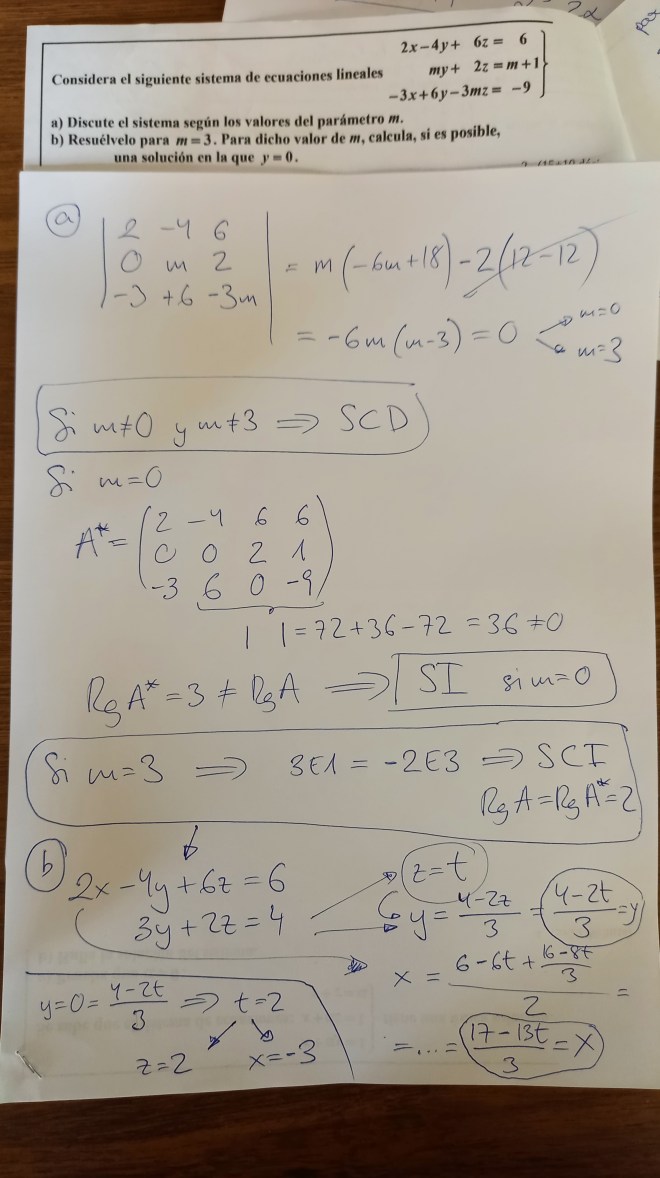 Considera el siguiente sistema de ecuaciones lineales
2x-4y+ 6z= 6
my+ 2z=m+1
-3x+6y-3mz= -9
a) Discute el sistema según los valores del parámetro m.
b) Resuélvelo para m=3. Para dicho valor de m, calcula, si es posible,
una solución en la que y=0.
a
| 2 -4 6 |
| 0 m 2 |
| -3 +6 -3m |
= m(-6m+18) -2(12-12)
= -6m(m-3) = 0
m=0
m=3
Si m≠0 y m≠3 ⇒ SCD
Si m=0
A*= ( 2 -4 6 6 )
( 0 0 2 1 )
( -3 6 0 -9 )
| | = 72+36-72 = 36 ≠0
Rg A* = 3 ≠ Rg A ⇒ SI si m=0
Si m=3 ⇒ 3E1 = -2E3 ⇒ SCI
Rg A = Rg A* = 2
b
2x-4y+6z=6
3y+2z=4
z=t
y = 4-2z/3 = 4-2t/3 = y
x = 6-6t + 16-8t/3 / 2 =
= ... = 17-13t/3 = x
y=0= 4-2t/3 ⇒ t=2
z=2 x=-3